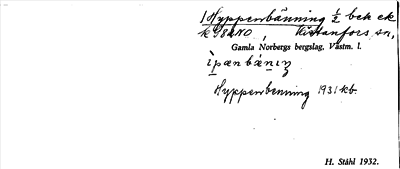 1 Hyppenbänning ½ bek ek
Västanfors sn,
Gamla Norbergs bergslag, Västm. l.
Hyppenbenning 1931 kb.
H. Ståhl 1932.